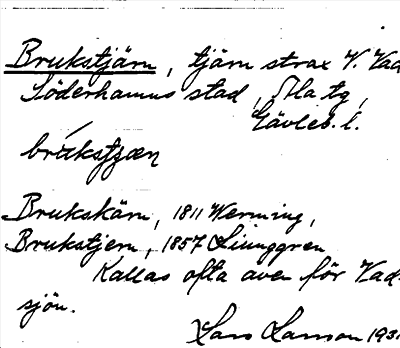 Brukstjärn, tjärn strax V. Vad
Söderhamns stad, Ala tg,
Gävleb. l.
brukstjæn
Brukskärn, 1811 Werming,
Brukstjern, 1857 Liunggren
Kallas ofta även för Vad-
sjön.
Lars Larsson 193